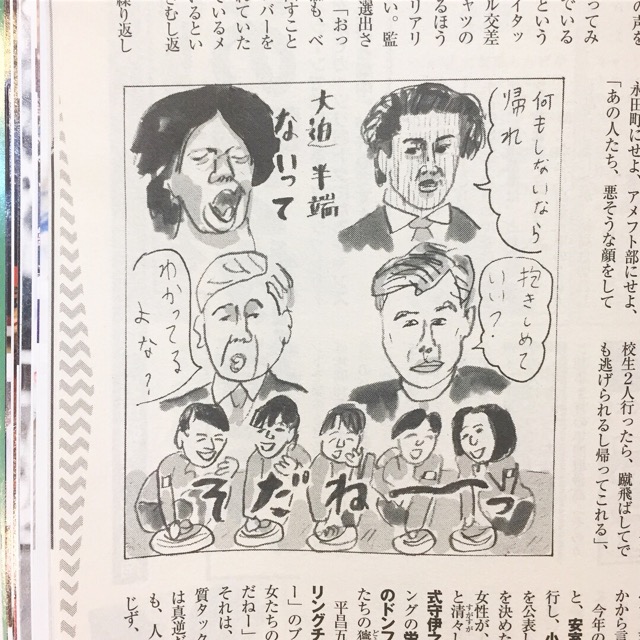 ってみ
でいる
という
イタッ
ル交差
ャツの
るほう
リアリ
い。監
選出さ
「おっ
も、ベ
すこと
バーを
れていた
ているメ
るとい
むし返
繰り返し
永田町にせよ、アメフト部にせよ、
「あの人たち、悪そうな顔をして
何もしないなら
帰れ
大迫
半端
ないって
抱きしめて
いい?
わかってる
よな?
そだねーッ
校生2人行ったら、蹴飛ばしてで
も逃げられるし帰ってこれる」、
今年
行し、小
を公表し
を決めた
女性が、
と清々
すがすが
式守伊之
ングの栄
のドンフ
たちの
平昌五
リングチ
ー」のブ
女たちの
だねー」
それは、
質タック
は真逆
も、人
じず、